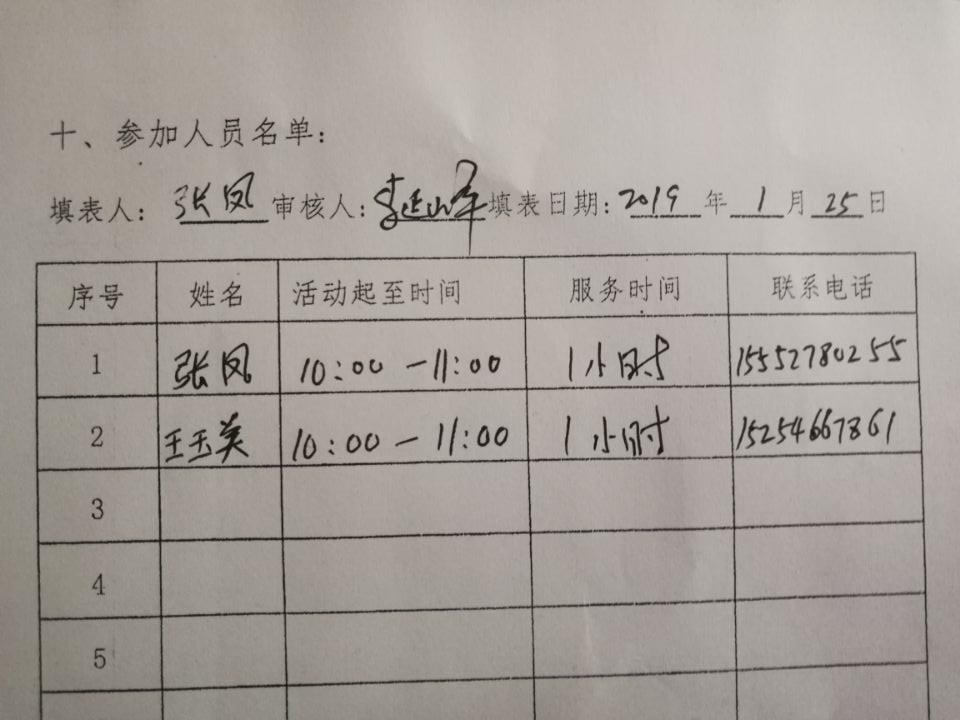 十、参加人员名单：
填表人：张凤 审核人：李延山 填表日期：2019年1月25日
序号 姓名 活动起至时间 服务时间 联系电话
1 张凤 10:00-11:00 1小时 15552780255
2 王玉美 10:00-11:00 1小时 15254667861
3
4
5